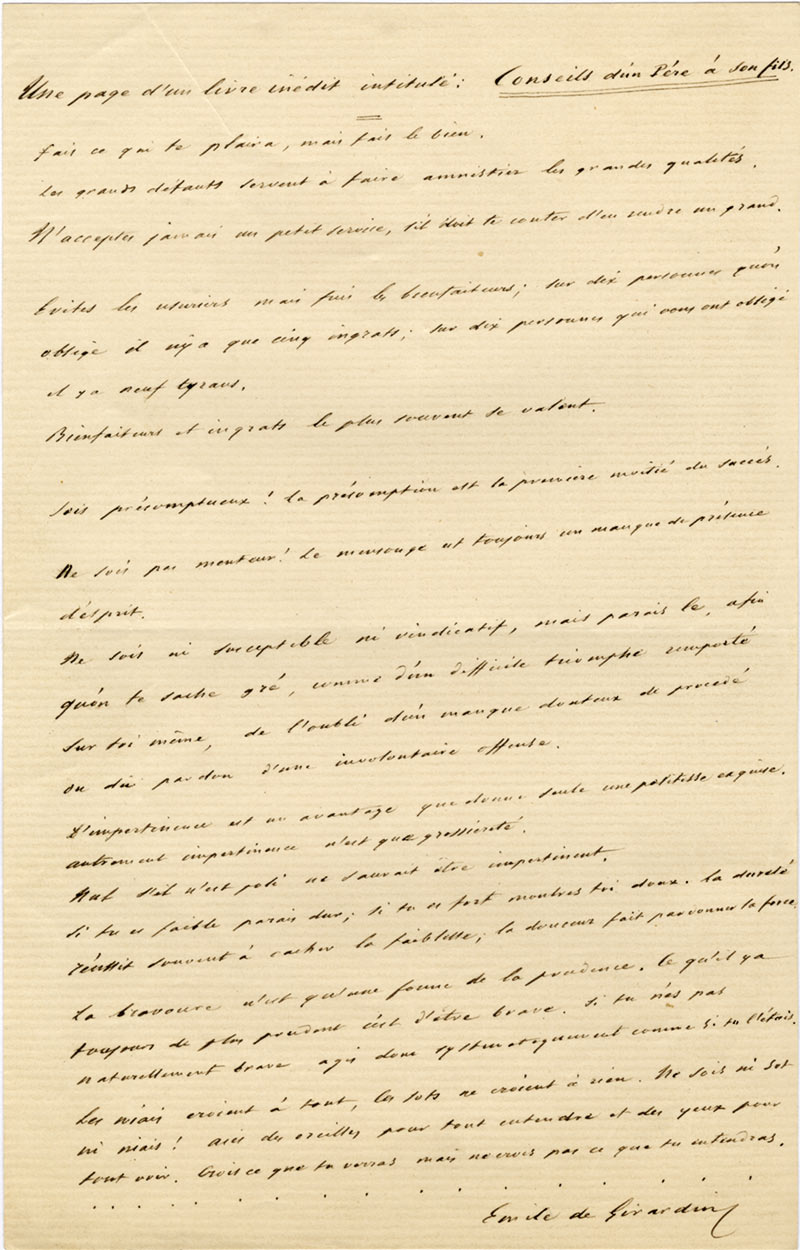 Une page d'un livre inédit intitulé: Conseils d'un Père à son fils.
Fais ce qui te plaira, mais fais le bien.
Les grands défauts servent à faire amnistier les grandes qualités.
N'acceptes jamais un petit service, s'il doit te couter d'en rendre un grand.
Evites les usuriers mais fuis les bienfaiteurs; sur dix personnes qu'on
oblige il n'y a que cinq ingrats; sur dix personnes qui vous ont obligé
il y a neuf tyrans.
Bienfaiteurs et ingrats le plus souvent se valent.
Sois présomptueux! La présomption est la première moitié du succès.
Ne sois pas menteur! Le mensonge est toujours un manque de présence
d'esprit.
Ne sois ni susceptible ni vindicatif, mais parais le, afin
qu'on te sache gré, comme d'un difficile triomphe remporté
sur toi même, de l'oubli d'un manque douteux de procédé
ou du pardon d'une involontaire offense.
L'impertinence est un avantage que donne seule une politesse exquise.
autrement impertinence n'est que grossièreté.
Nul s'il n'est poli ne saurait être impertinent.
Si tu es faible parais dur; si tu es fort montres toi doux. La dureté
réussit souvent à cacher la faiblesse; la douceur fait pardonner la force.
La bravoure n'est qu'une forme de la prudence. Ce qu'il y a
toujours de plus prudent c'est d'être brave. Si tu n'es pas
naturellement brave agis donc systematiquement comme si tu l'étais.
Les niais croient à tout, les sots ne croient à rien. Ne sois ni sot
ni niais! aies des oreilles pour tout entendre et des yeux pour
tout voir. Crois ce que tu verras mais ne crois pas ce que tu entendras.
. . . . . . . . . . . . . .
Emile de Girardin